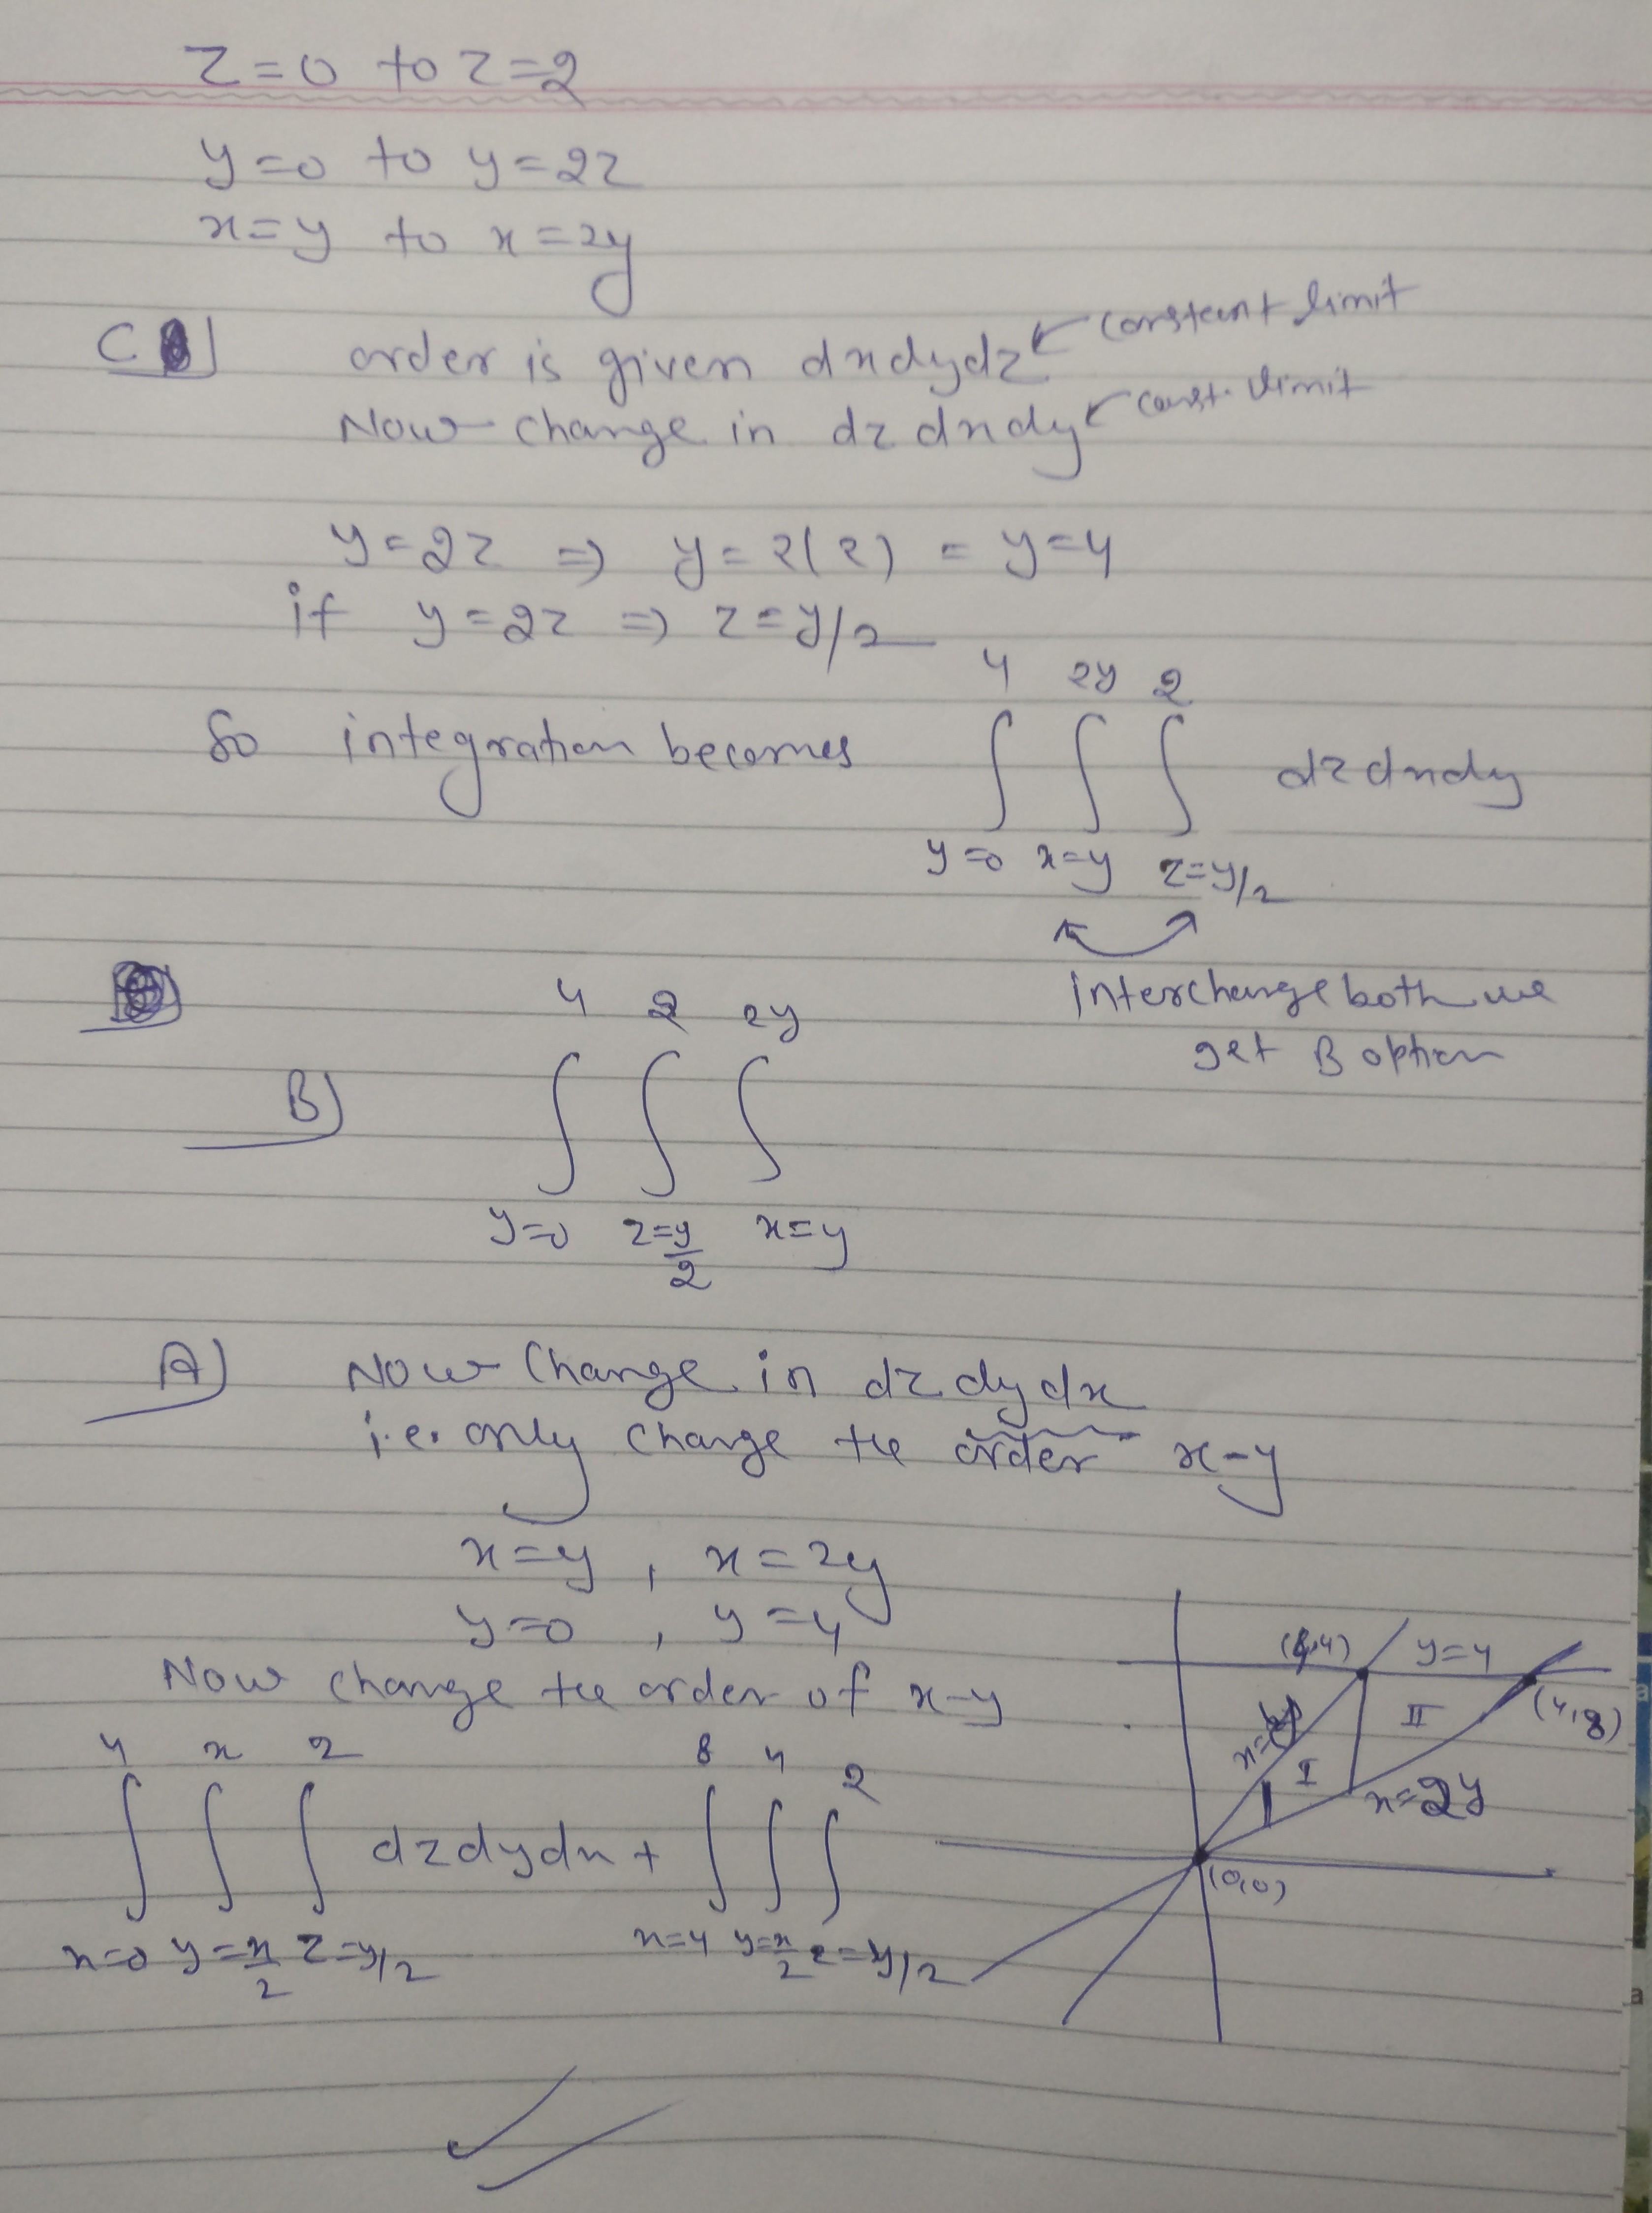 z=0 to z=2
y=0 to y=2z
x=y to x=2y
C) order is given dxdydz ← constant limit
Now change in dzdxdy ← const. limit
y=2z ⇒ y=2(2) = y=4
if y=2z ⇒ z=y/2
4 2y 2
So integration becomes ∫ ∫ ∫ dzdxdy
y=0 x=y z=y/2
interchange both we
get B option
4 2 2y
B) ∫ ∫ ∫
y=0 z=y/2 x=y
A) Now Change in dzdydx
i.e. only change the order x-y
x=y , x=2y
y=0 , y=4
Now change the order of x-y
4 x 2 8 4 2
∫ ∫ ∫ dzdydx + ∫ ∫ ∫
x=0 y=x/2 z=y/2 x=4 y=x/2 z=y/2
(4,4) y=4
II (4,8)
x=y
I
x=2y
(0,0)